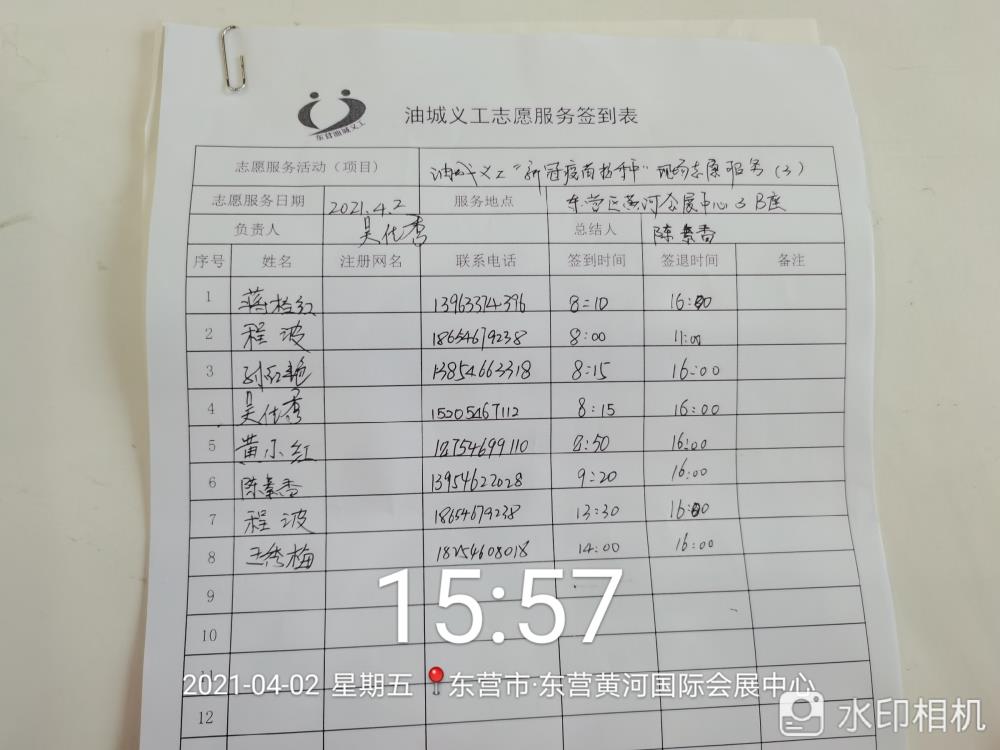 东营油城义工
油城义工志愿服务签到表
志愿服务活动（项目） 油城义工“新冠疫苗接种”现场志愿服务（3）
志愿服务日期 2021.4.2 服务地点 东营区黄河会展中心3B座
负责人 吴仕秀 总结人 陈素香
序号 姓名 注册网名 联系电话 签到时间 签退时间 备注
1 蒋桂红 13963374396 8:10 16:00
2 程波 18654679238 8:00 11:00
3 孙红艳 13854663318 8:15 16:00
4 吴仕秀 15205467112 8:15 16:00
5 黄小红 18754699110 8:50 16:00
6 陈素香 13954622028 9:20 16:00
7 程波 18654679238 13:30 16:00
8 王秀梅 18254608018 14:00 16:00
9
10
11
12
15:57
2021-04-02 星期五 东营市·东营黄河国际会展中心
水印相机